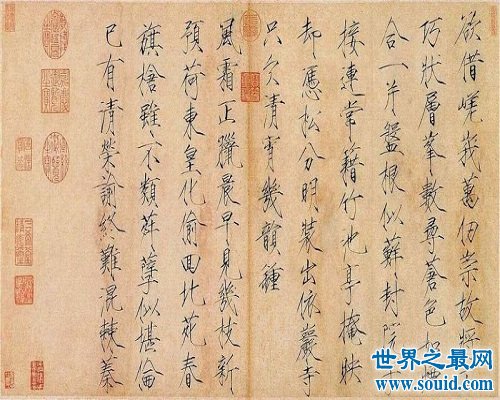 欲借嵯峩萬仞崇故將工
巧狀層峯數尋蒼色如煙
合一片盤根似蘚封院宇
接連常籍竹池亭掩映
却憑松分明裝出依巖寺
只欠清宵幾韻鍾
風霜正臘晨早見幾枝新
預荷東皇化偷回北苑春
旗槍雖不類荈孽似堪倫
已有清榮諭終難混棘蓁
世界之最网
www.souid.com